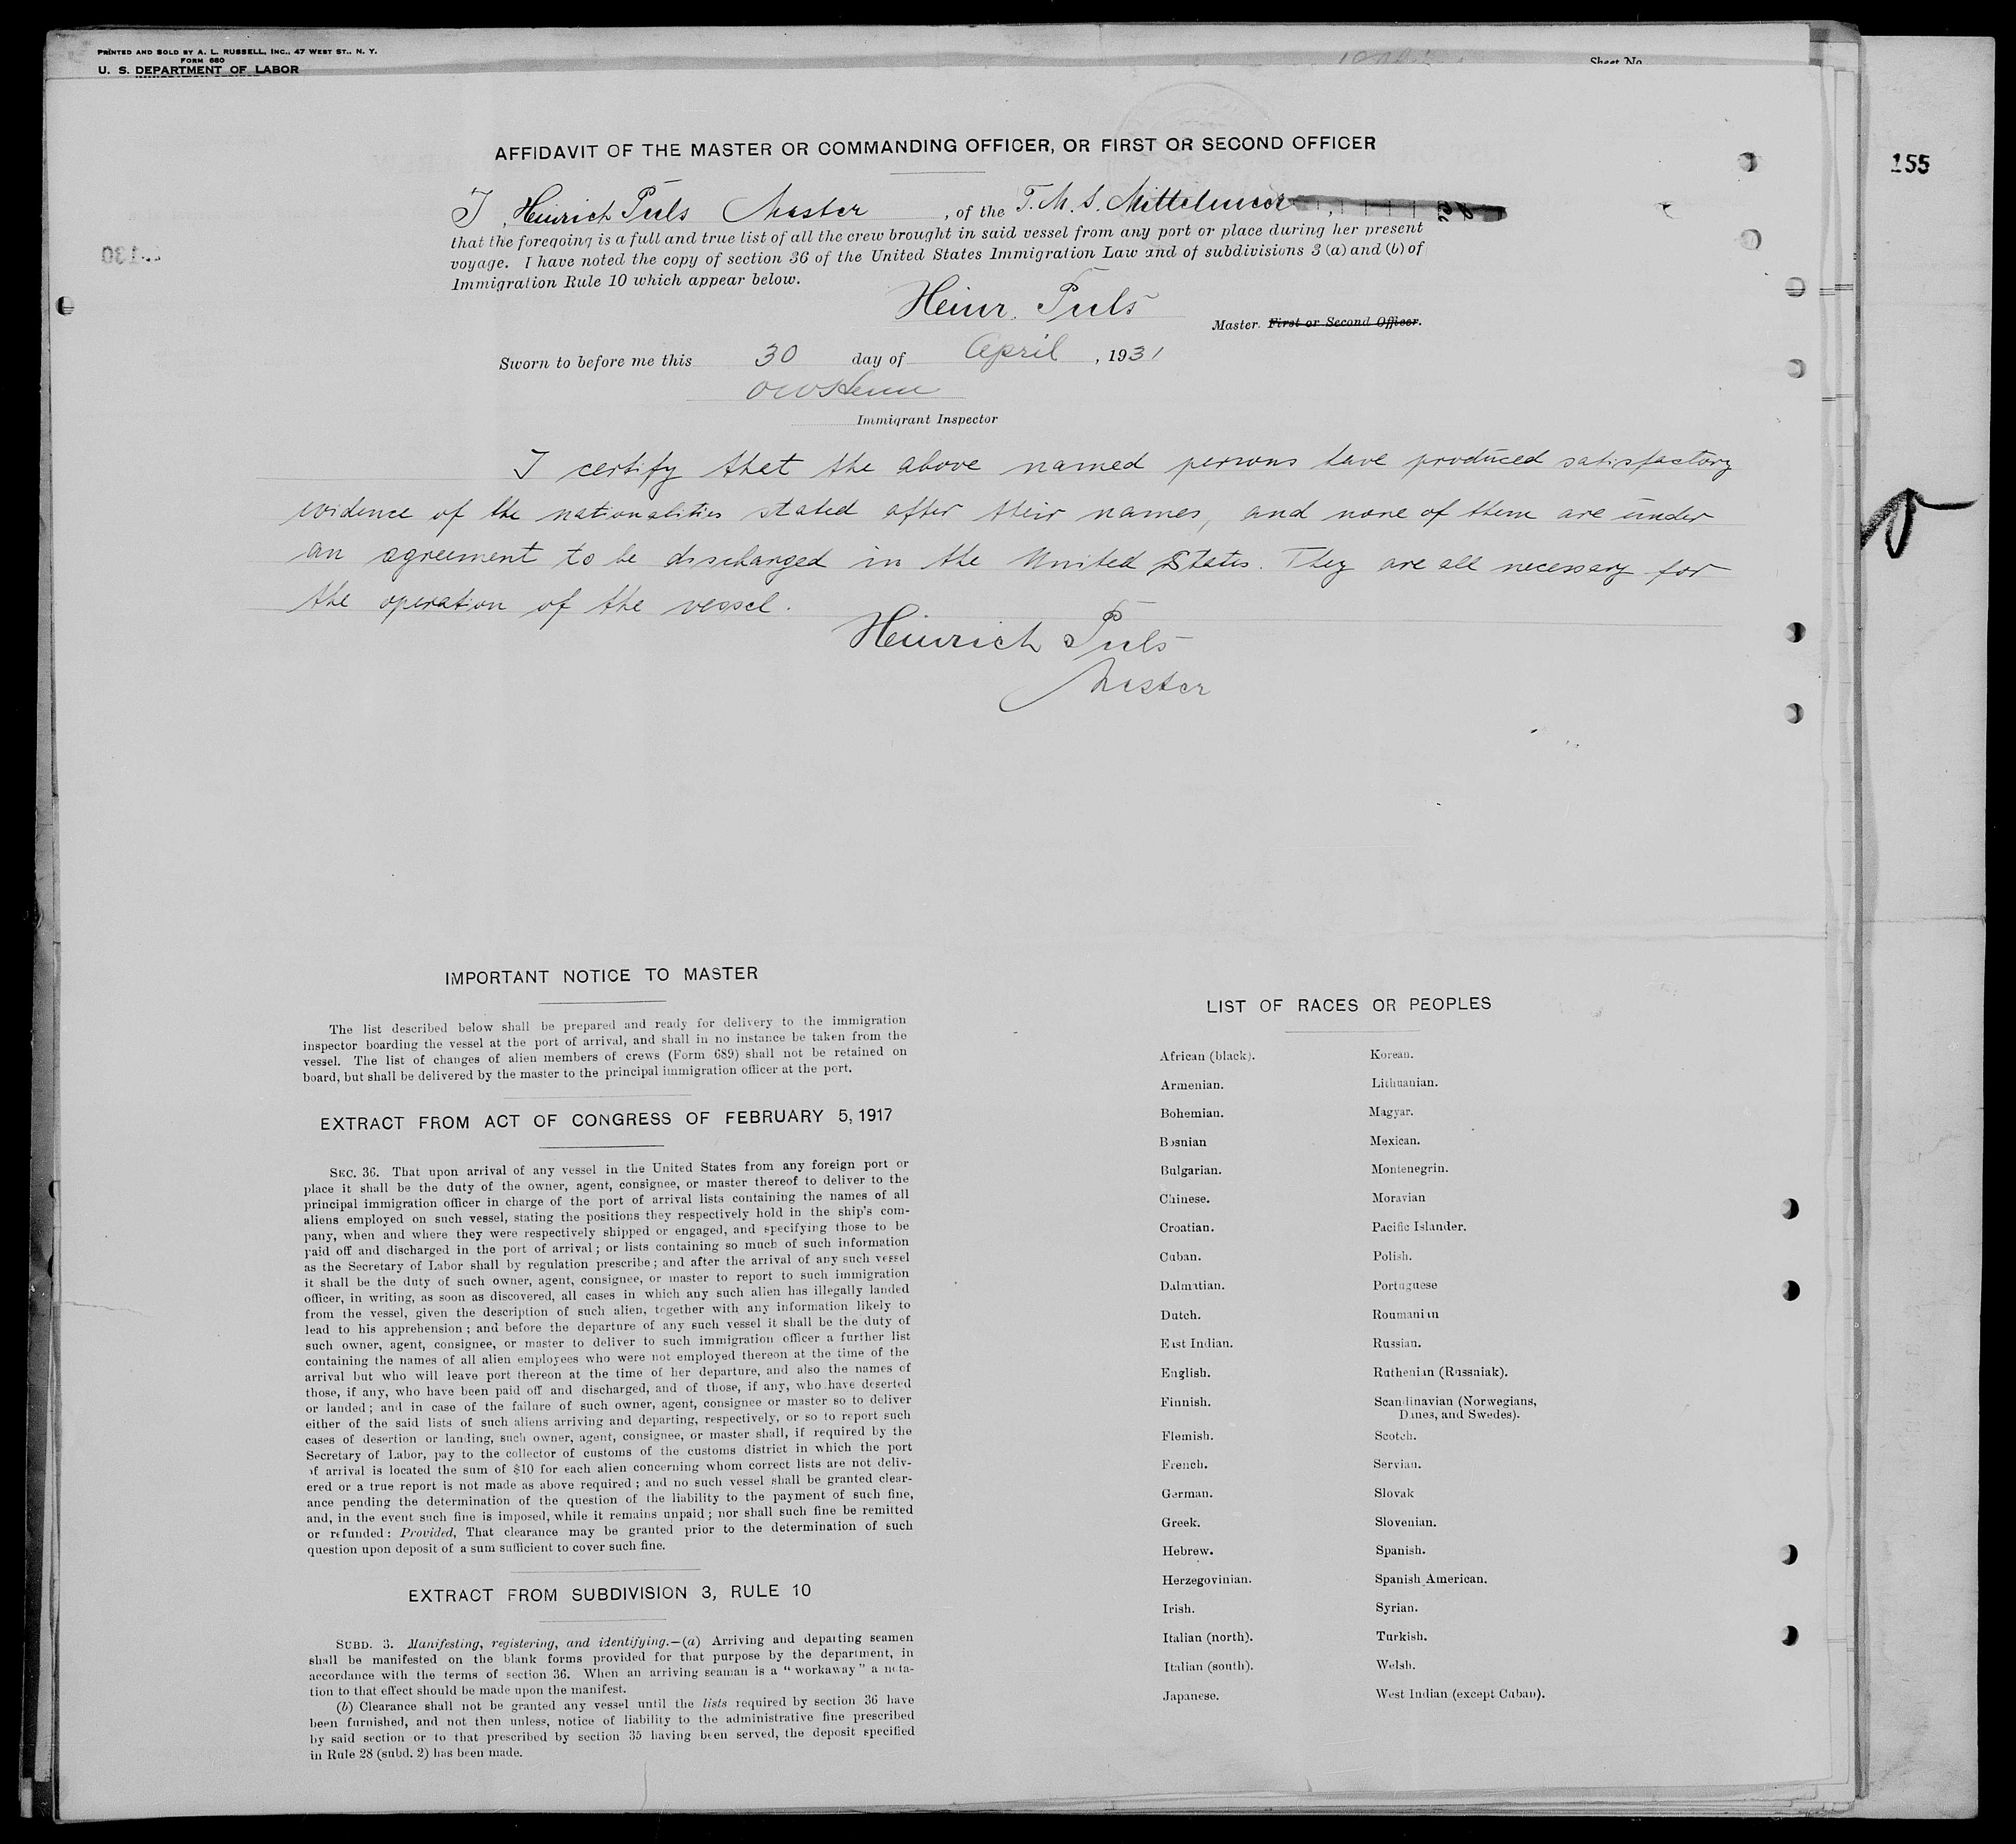 PRINTED AND SOLD BY A. L. RUSSELL, INC., 47 WEST ST., N. Y.
FORM 680
U. S. DEPARTMENT OF LABOR
Sheet No
155
AFFIDAVIT OF THE MASTER OR COMMANDING OFFICER, OR FIRST OR SECOND OFFICER
I, Heinrich Puls Master, of the T. M. S. Mittelmeer
that the foregoing is a full and true list of all the crew brought in said vessel from any port or place during her present
voyage. I have noted the copy of section 36 of the United States Immigration Law and of subdivisions 3 (a) and (b) of
Immigration Rule 10 which appear below.
Heinr. Puls
Master. First or Second Officer.
Sworn to before me this 30 day of April, 1931
Immigrant Inspector
I certify that the above named persons have produced satisfactory
evidence of the nationalities stated after their names, and none of them are under
an agreement to be discharged in the United States. They are all necessary for
the operation of the vessel.
Heinrich Puls
Master
IMPORTANT NOTICE TO MASTER
The list described below shall be prepared and ready for delivery to the immigration
inspector boarding the vessel at the port of arrival, and shall in no instance be taken from the
vessel. The list of changes of alien members of crews (Form 689) shall not be retained on
board, but shall be delivered by the master to the principal immigration officer at the port.
EXTRACT FROM ACT OF CONGRESS OF FEBRUARY 5, 1917
SEC. 36. That upon arrival of any vessel in the United States from any foreign port or
place it shall be the duty of the owner, agent, consignee, or master thereof to deliver to the
principal immigration officer in charge of the port of arrival lists containing the names of all
aliens employed on such vessel, stating the positions they respectively hold in the ship's com-
pany, when and where they were respectively shipped or engaged, and specifying those to be
paid off and discharged in the port of arrival; or lists containing so much of such information
as the Secretary of Labor shall by regulation prescribe; and after the arrival of any such vessel
it shall be the duty of such owner, agent, consignee, or master to report to such immigration
officer, in writing, as soon as discovered, all cases in which any such alien has illegally landed
from the vessel, given the description of such alien, together with any information likely to
lead to his apprehension; and before the departure of any such vessel it shall be the duty of
such owner, agent, consignee, or master to deliver to such immigration officer a further list
containing the names of all alien employees who were not employed thereon at the time of the
arrival but who will leave port thereon at the time of her departure, and also the names of
those, if any, who have been paid off and discharged, and of those, if any, who have deserted
or landed; and in case of the failure of such owner, agent, consignee or master so to deliver
either of the said lists of such aliens arriving and departing, respectively, or so to report such
cases of desertion or landing, such owner, agent, consignee, or master shall, if required by the
Secretary of Labor, pay to the collector of customs of the customs district in which the port
of arrival is located the sum of $10 for each alien concerning whom correct lists are not deliv-
ered or a true report is not made as above required; and no such vessel shall be granted clear-
ance pending the determination of the question of the liability to the payment of such fine,
and, in the event such fine is imposed, while it remains unpaid; nor shall such fine be remitted
or refunded: Provided, That clearance may be granted prior to the determination of such
question upon deposit of a sum sufficient to cover such fine.
EXTRACT FROM SUBDIVISION 3, RULE 10
SUBD. 3. Manifesting, registering, and identifying.—(a) Arriving and departing seamen
shall be manifested on the blank forms provided for that purpose by the department, in
accordance with the terms of section 36. When an arriving seaman is a "workaway" a nota-
tion to that effect should be made upon the manifest.
(b) Clearance shall not be granted any vessel until the lists required by section 36 have
been furnished, and not then unless, notice of liability to the administrative fine prescribed
by said section or to that prescribed by section 35 having been served, the deposit specified
in Rule 28 (subd. 2) has been made.
LIST OF RACES OR PEOPLES
African (black).
Armenian.
Bohemian.
Bosnian
Bulgarian.
Chinese.
Croatian.
Cuban.
Dalmatian.
Dutch.
East Indian.
English.
Finnish.
Flemish.
French.
German.
Greek.
Hebrew.
Herzegovinian.
Irish.
Italian (north).
Italian (south).
Japanese.
Korean.
Lithuanian.
Magyar.
Mexican.
Montenegrin.
Moravian
Pacific Islander.
Polish.
Portuguese
Roumanian
Russian.
Ruthenian (Russniak).
Scandinavian (Norwegians,
Danes, and Swedes).
Scotch.
Servian.
Slovak
Slovenian.
Spanish.
Spanish American.
Syrian.
Turkish.
Welsh.
West Indian (except Cuban).